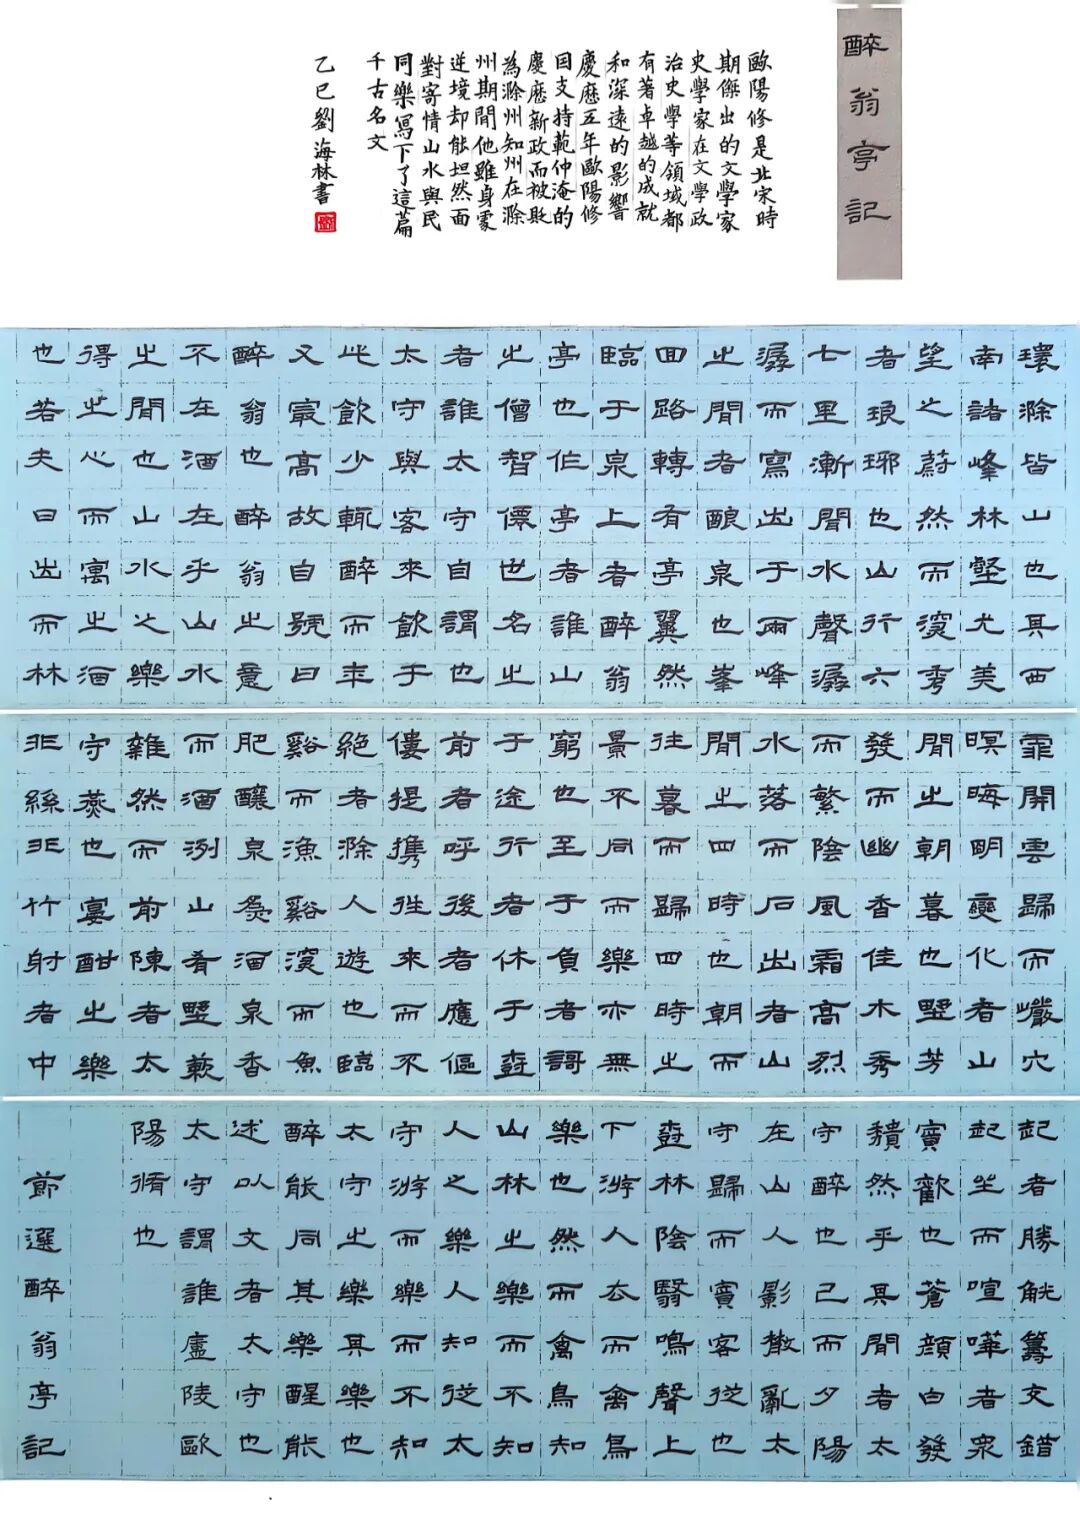 醉翁亭記
歐陽修是北宋時
期傑出的文學家
史學家在文學政
治史學等領域都
有著卓越的成就
和深遠的影響
慶歷五年歐陽修
因支持範仲淹的
慶歷新政而被貶
為滁州知州在滁
州期間他雖身處
逆境却能坦然面
對寄情山水與民
同樂寫下了這篇
千古名文
乙巳劉海林書
環滁皆山也其西
南諸峰林壑尤美
望之蔚然而深秀
者琅琊也山行六
七里漸聞水聲潺
潺而瀉出于兩峰
之間者釀泉也峯
回路轉有亭翼然
臨于泉上者醉翁
亭也作亭者誰山
之僧智僊也名之
者誰太守自謂也
太守與客來飲于
此飲少輒醉而年
又最高故自號曰
醉翁也醉翁之意
不在酒在乎山水
之間也山水之樂
得之心而寓之酒
也若夫日出而林
霏開雲歸而巖穴
暝晦明變化者山
間之朝暮也野芳
發而幽香佳木秀
而繁陰風霜高烈
水落而石出者山
間之四時也朝而
往暮而歸四時之
景不同而樂亦無
窮也至于負者謌
于途行者休于樹
前者呼後者應傴
僂提攜往來而不
絕者滁人遊也臨
谿而漁谿深而魚
肥釀泉為酒泉香
而酒洌山肴野蔌
雜然而前陳者太
守燕也宴酣之樂
非絲非竹射者中
起者勝觥籌交錯
起坐而喧嘩者衆
賓歡也蒼顏白發
穨然乎其間者太
守醉也已而夕陽
在山人影散亂太
守歸而賓客從也
樹林陰翳鳴聲上
下游人去而禽鳥
樂也然而禽鳥知
山林之樂而不知
人之樂人知從太
守游而樂而不知
太守之樂其樂也
醉能同其樂醒能
述以文者太守也
太守謂誰廬陵歐
陽脩也
節選醉翁亭記